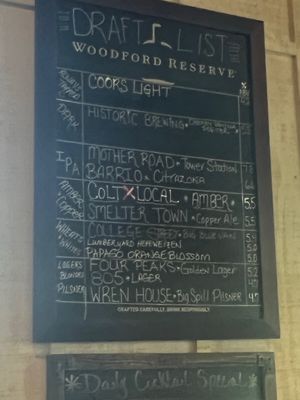 DRAFT LIST
WOODFORD RESERVE
COORS LIGHT
DARK
HISTORIC BREWING
IPA
MOTHER ROAD • Tower Station
BARRIO • CITRAZONA
AMBER
COPPER
COLT X LOCAL • AMBER • 5.5
SMELTER TOWN • COPPER ALE 5.5
WHEATS
COLLEGE STREET • BIG BLUE VAN
LUMBERYARD HEFEWEIZEN 5.0
PAPAGO ORANGE BLOSSOM 5.0
LAGERS
BLONDES
PILSNER
FOUR PEAKS • Golden Lager 5.2
805 • LAGER 4.7
WREN HOUSE • Big Spill PILSNER 4.7
CRAFTED CAREFULLY. DRINK RESPONSIBLY.
Daily Cocktail Special